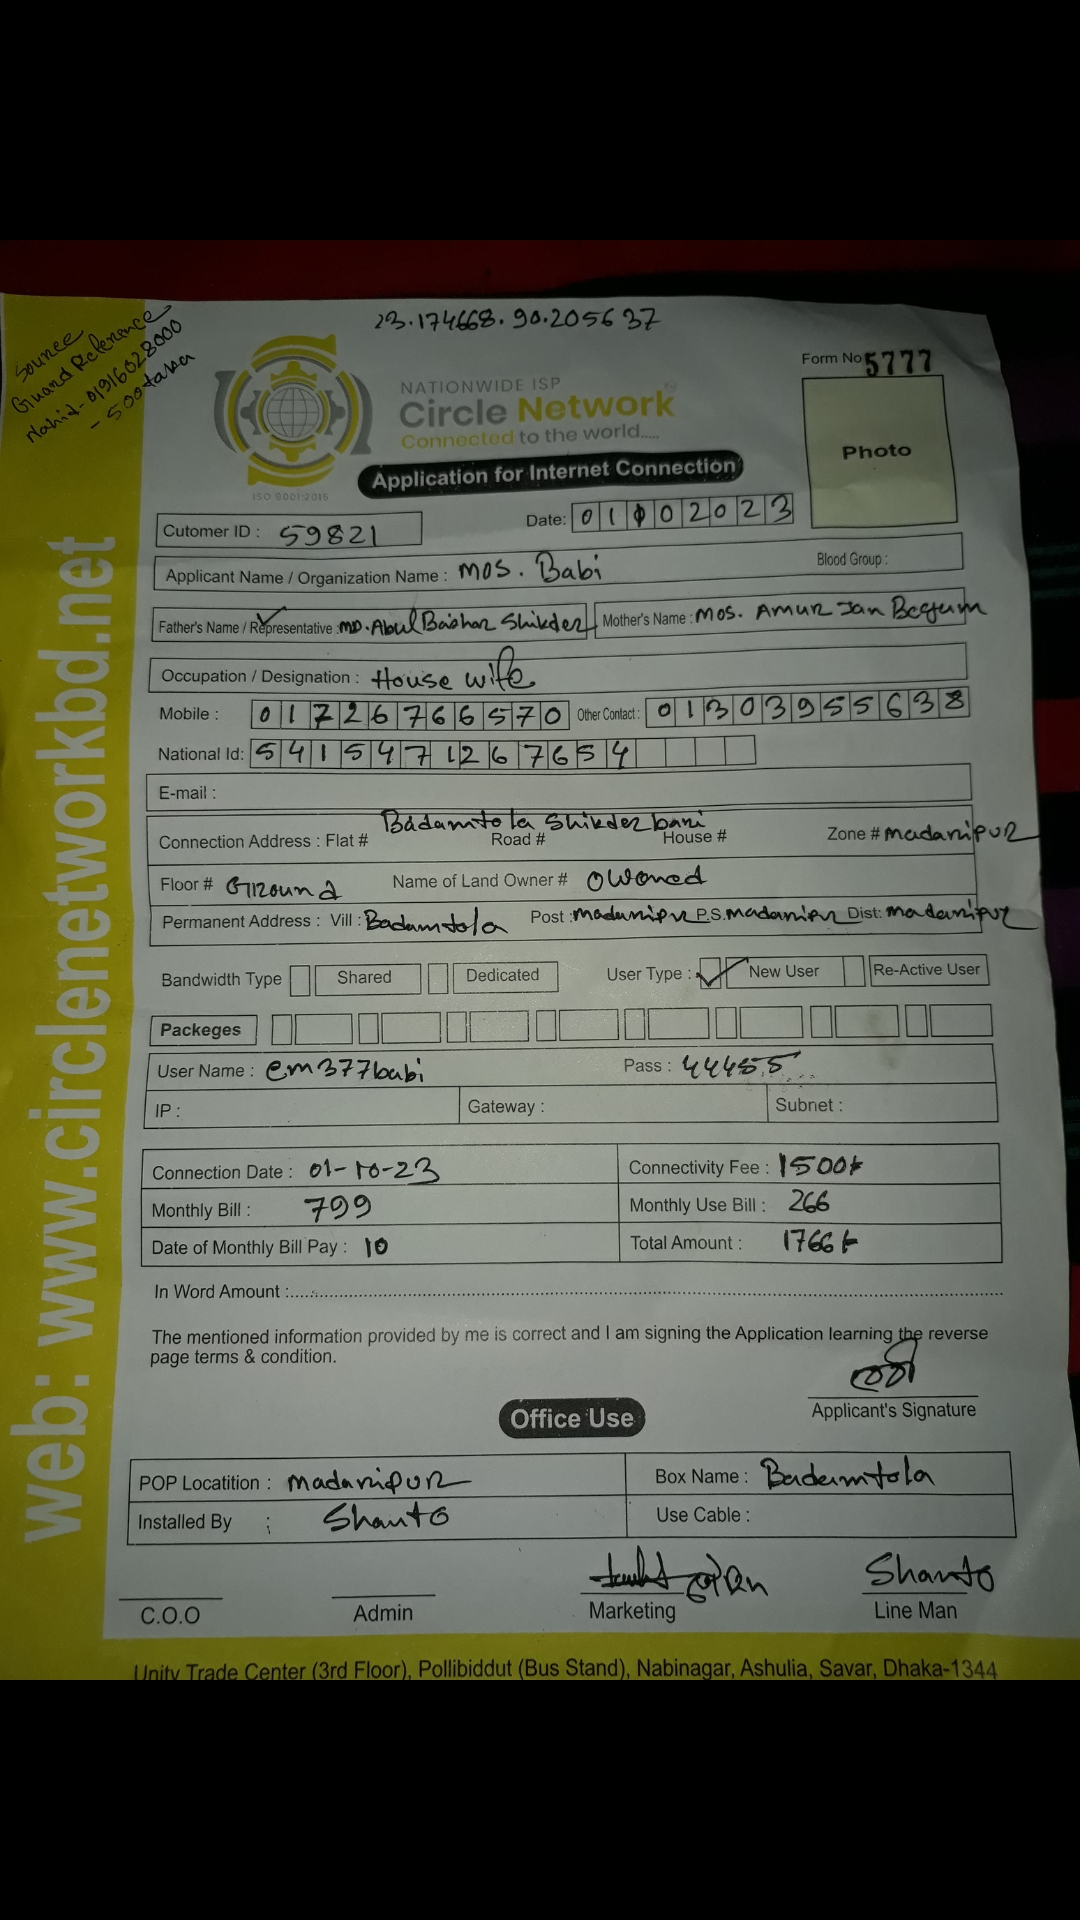 23.174668.90.205637
Source
Guard Reference
Nahid-01916028000
- 500 taka
Form No 5777
NATIONWIDE ISP
Circle Network
Connected to the world.....
ISO 9001:2015
Photo
Application for Internet Connection
Cutomer ID : 59821
Date: 01102023
Applicant Name / Organization Name : Mos. Babi
Blood Group :
Father's Name / Representative : MD. Abul Baishar Shikder
Mother's Name : Mos. Amur Jan Begum
Occupation / Designation : House wife
Mobile : 01726766570 Other Contact : 01303955638
National Id: 5415471267654
E-mail :
Badamtola Shikder bari
Connection Address : Flat # Road # House # Zone # madaripur
Floor # Ground Name of Land Owner # Owoned
Permanent Address : Vill : Badamtola Post : madaripur P.S. Madaripur Dist: madaripur
Bandwidth Type Shared Dedicated User Type : New User Re-Active User
Packeges
User Name : em377babi Pass : 44455
IP : Gateway : Subnet :
Connection Date : 01-10-23 Connectivity Fee : 1500t
Monthly Bill : 799 Monthly Use Bill : 266
Date of Monthly Bill Pay : 10 Total Amount : 1766t
In Word Amount :
The mentioned information provided by me is correct and I am signing the Application learning the reverse
page terms & condition.
Applicant's Signature
Office Use
POP Locatition : Madaripur Box Name : Badamtola
Installed By : Shanto Use Cable :
Shanto
C.O.O Admin Marketing Line Man
Unity Trade Center (3rd Floor), Pollibiddut (Bus Stand), Nabinagar, Ashulia, Savar, Dhaka-1344
web: www.circlenetworkbd.net